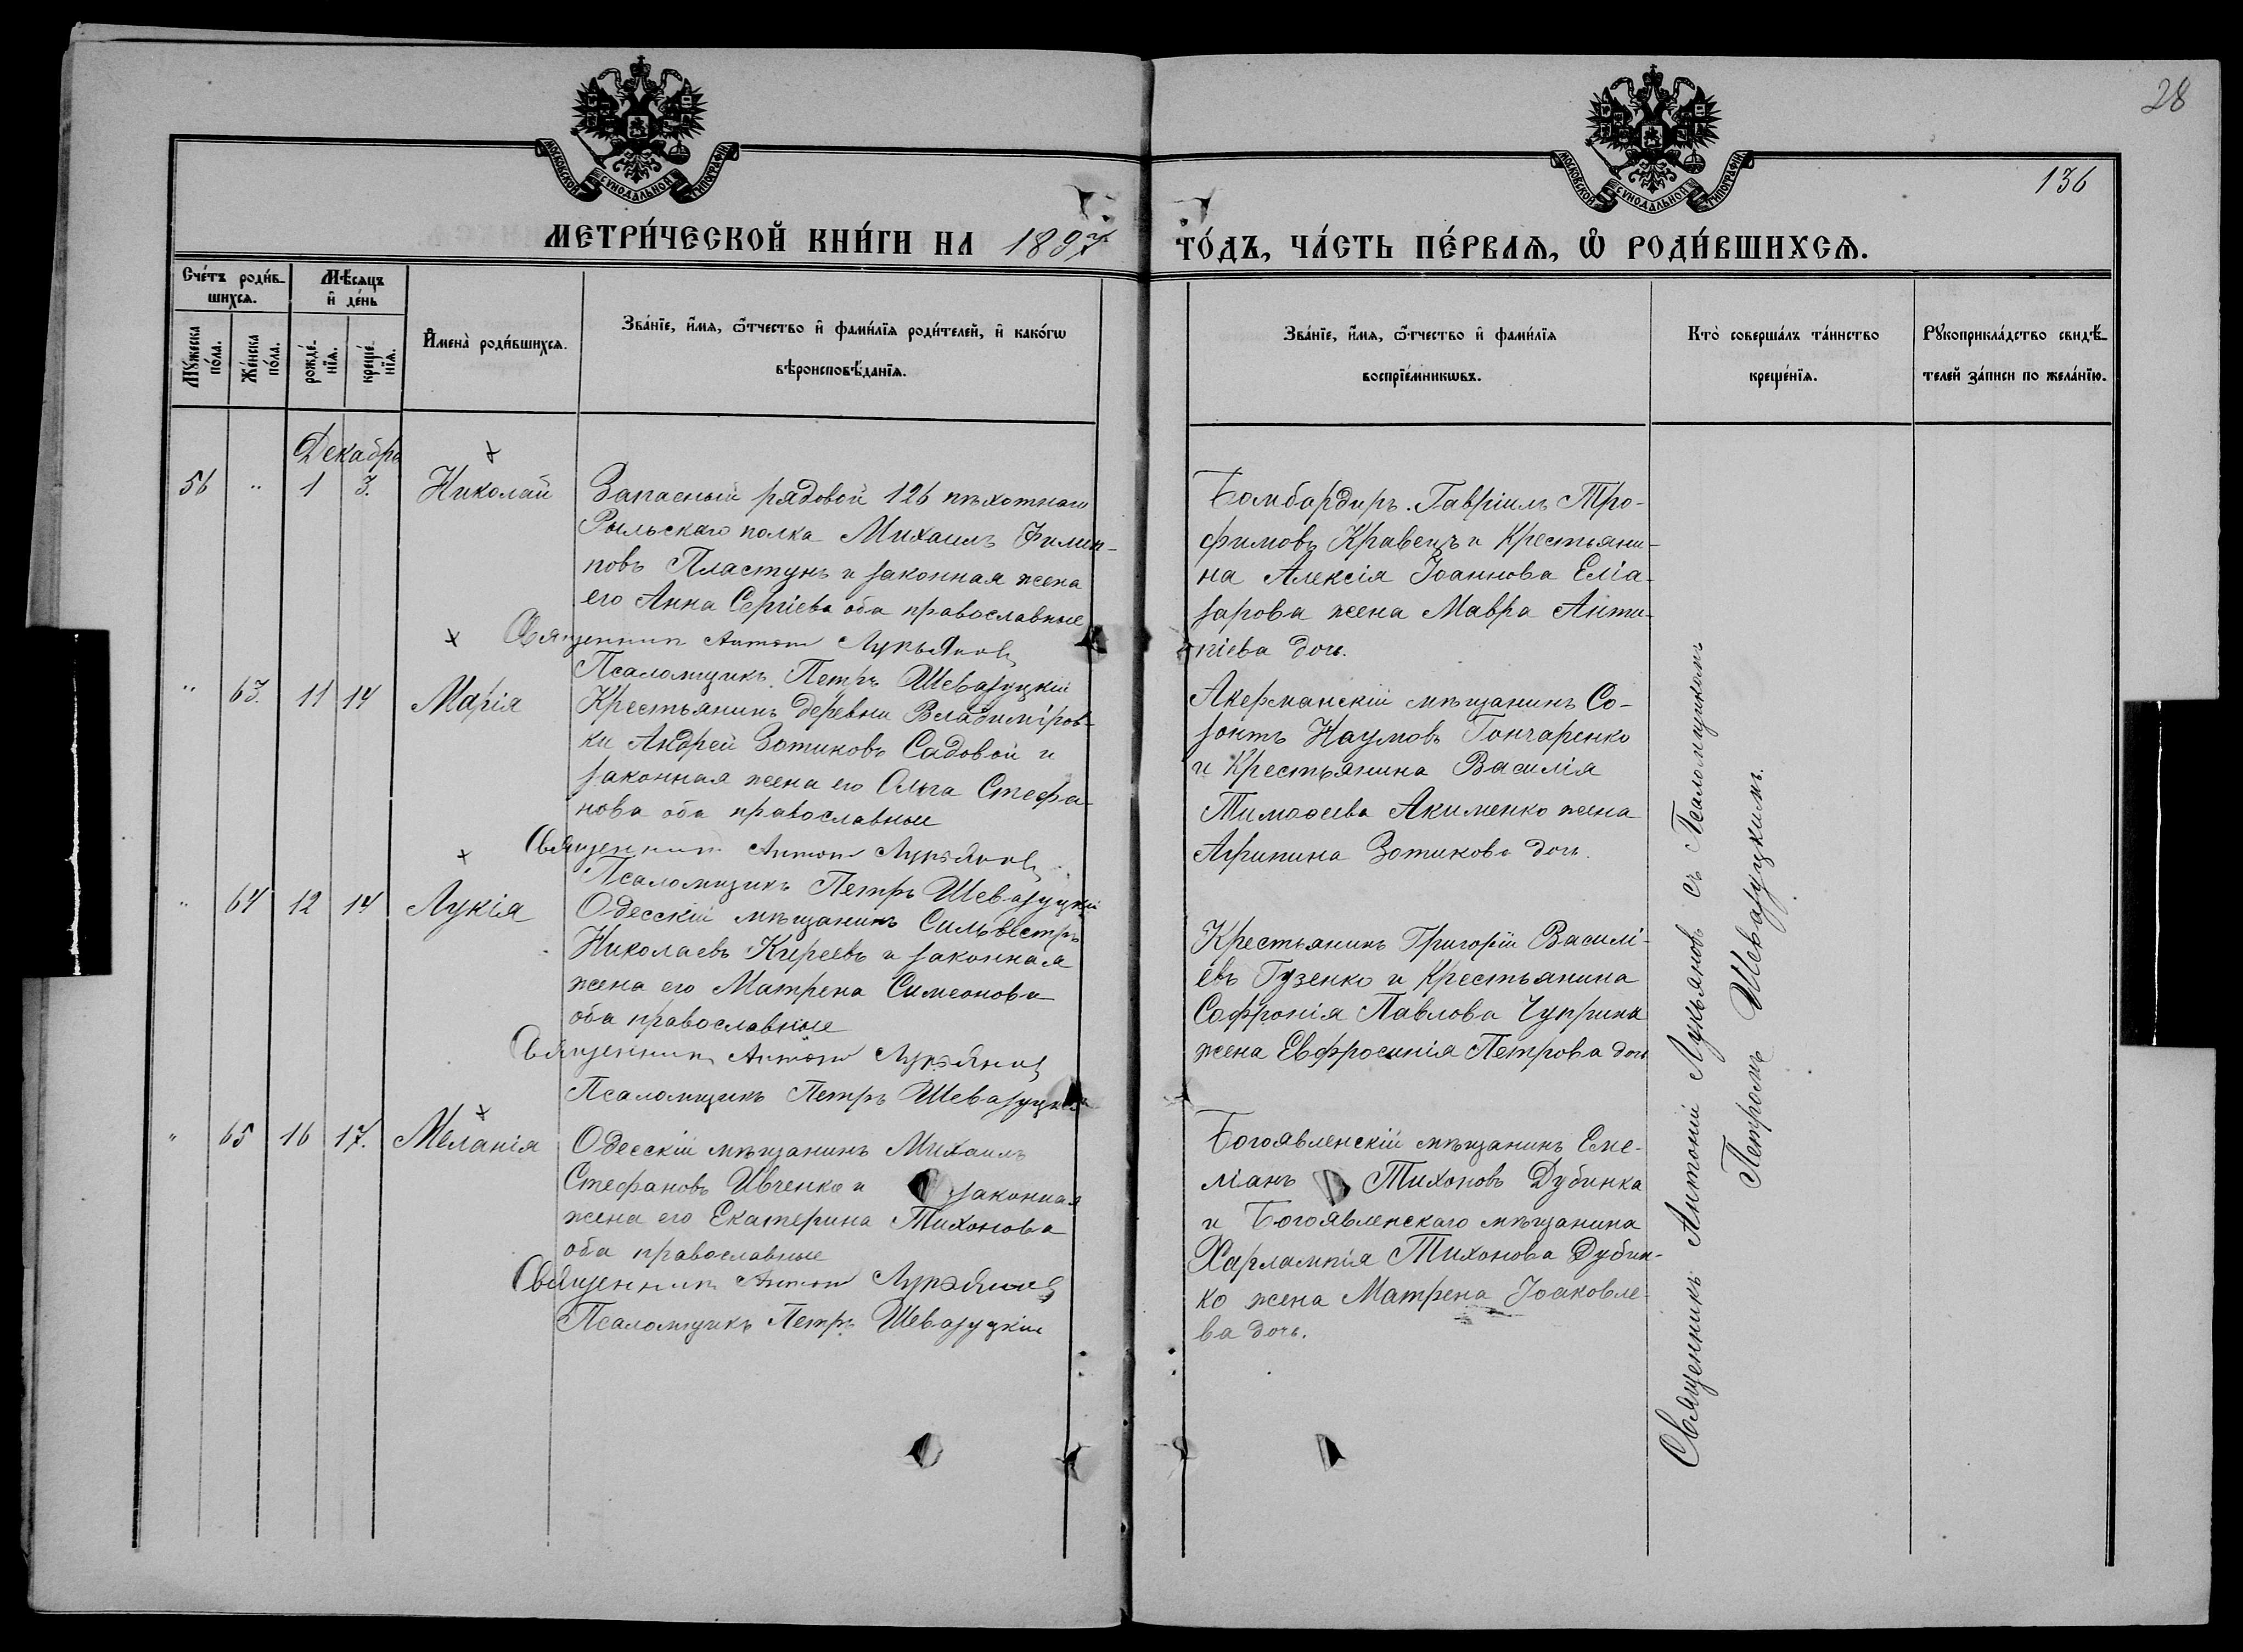 28
136
МОСКОВСКОЙ СѴНОДАЛЬНОЙ ТИПОГРАФІИ
МОСКОВСКОЙ СѴНОДАЛЬНОЙ ТИПОГРАФІИ
МЕТРИ́ЧЕСКОЙ КНИ́ГИ НА 1897
ГО́ДЪ, ЧА́СТЬ ПЕ́РВАѦ, Ѡ҆ РОДИ́ВШИХСѦ.
Сче́тъ роди́в-
шихсѧ.
Мѣ́сѧцъ
и҆ де́нь
Мꙋ́жеска
по́ла.
Же́нска
по́ла.
рожде́-
нїѧ.
креще́-
нїѧ.
И҆мена̀ роди́вшихсѧ.
Зва́нїе, и҆́мѧ, ѻ҆́тчество и҆ фами́лїѧ роди́телей, и҆ како́гѡ
вѣроисповѣ́данїѧ.
Зва́нїе, и҆́мѧ, ѻ҆́тчество и҆ фами́лїѧ
воспрїе́мникѡвъ.
Кто̀ соверша́лъ та́инство
креще́нїѧ.
Рꙋкоприкла́дство свидѣ́-
телей за́писи по жела́нїю.
Декабрь
56 " 1 3. Николай
Запасный рядовой 126 пѣхотнаго
Рыльскаго полка Михаилъ Филип-
повъ Пластунъ и законная жена
его Анна Сергіева оба православные
Священникъ Антоній Лукьяновъ
Псаломщикъ Петръ Шевазуцкій
Бомбардиръ Гавріилъ Тро-
фимовъ Кравецъ и Крестьяни-
на Алексія Іоаннова Еліа-
зарова жена Мавра Анти-
піева дочь.
" 63. 11 14 Марія
Крестьянинъ деревни Владиміров-
ки Андрей Зотиковъ Садовой и
законная жена его Ольга Стефа-
нова оба православные
Священникъ Антоній Лукьяновъ
Псаломщикъ Петръ Шевазуцкій
Акерманскій мѣщанинъ Со-
зонтъ Наумовъ Гончаренко
и Крестьянина Василія
Тимоѳеева Акименко жена
Агрипина Зотикова дочь.
" 64 12 14 Лукія
Одесскій мѣщанинъ Сильвестръ
Николаевъ Киреевъ и законная
жена его Матрена Симеонова
оба православные
Священникъ Антоній Лукьяновъ
Псаломщикъ Петръ Шевазуцкій
Крестьянинъ Григорій Василі-
евъ Гузенко и Крестьянина
Софронія Павлова Чуприна
жена Евфросинія Петрова дочь
" 65 16 17. Меланія
Одесскій мѣщанинъ Михаилъ
Стефановъ Ивченко и законная
жена его Екатерина Тихонова
оба православные
Священникъ Антоній Лукьяновъ
Псаломщикъ Петръ Шевазуцкій
Богоявленскій мѣщанинъ Еме-
ліанъ Тихоновъ Дубинка
и Богоявленскаго мѣщанина
Харлампія Тихонова Дубин-
ко жена Матрена Іоаковле-
ва дочь.
Священникъ Антоній Лукьяновъ съ Псаломщикомъ
Петромъ Шевазуцкимъ.